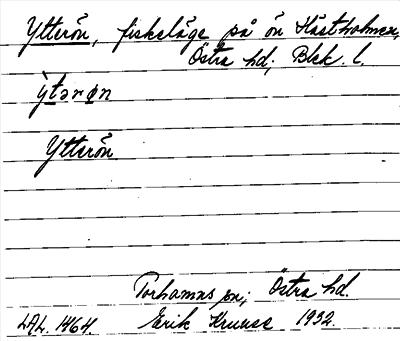 Ytterön, fiskeläge på ön Hästholmen,
Östra hd; Blek. l.
ỳtərøn
Ytterön
Torhamns sn; Östra hd.
LAL. 1464. Erik Kruuse 1932.